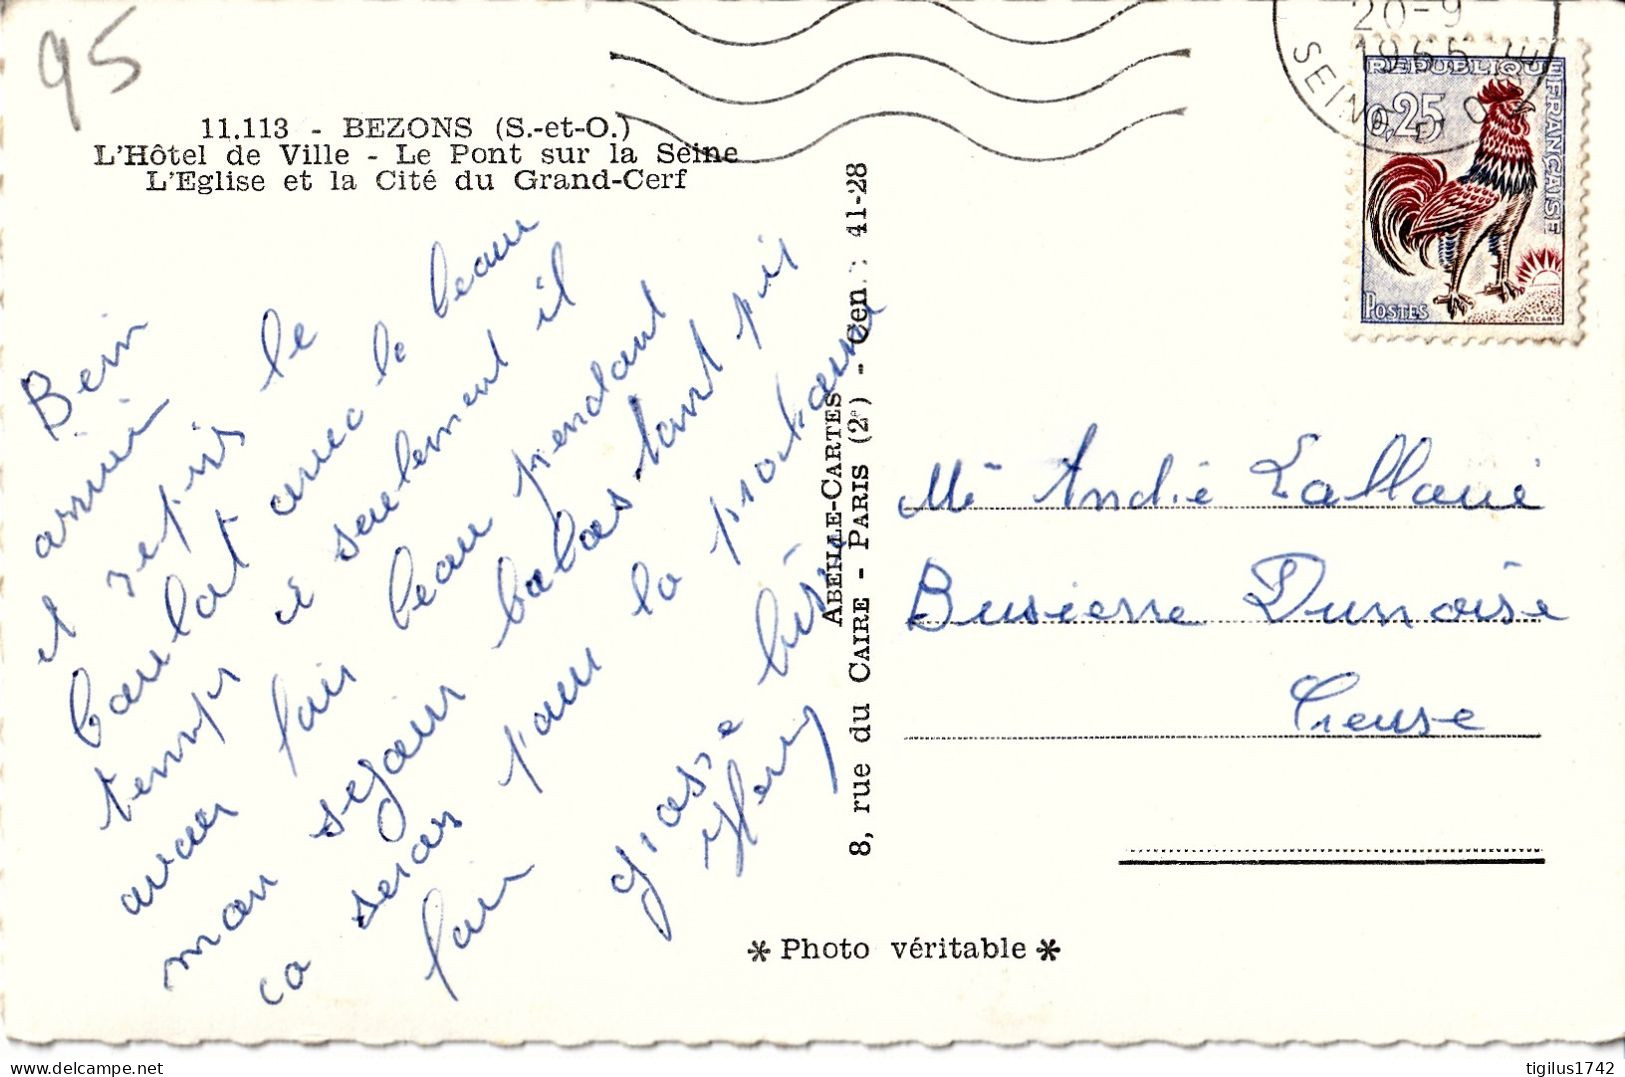 95
11.113 - BEZONS (S.-et-O.)
L'Hôtel de Ville - Le Pont sur la Seine
L'Eglise et la Cité du Grand-Cerf
Bein
arriver
et repris le
boulot avec le beau
temps et seulement il
avais fais beau pendant
mon sejour balas tant pis
ca seras pour la prochaine
fair
grosse bise
Henry
ABEILLE-CARTES
8, rue du CAIRE - PARIS (2e) - Cen.: 41-28
20-9
1965
SEINE ET O
REPUBLIQUE FRANÇAISE
0,25
POSTES
DECARIS
Mr André Lallane
Busierre Dunoise
Creuse
* Photo véritable *
delcampe.net
tigilus1742